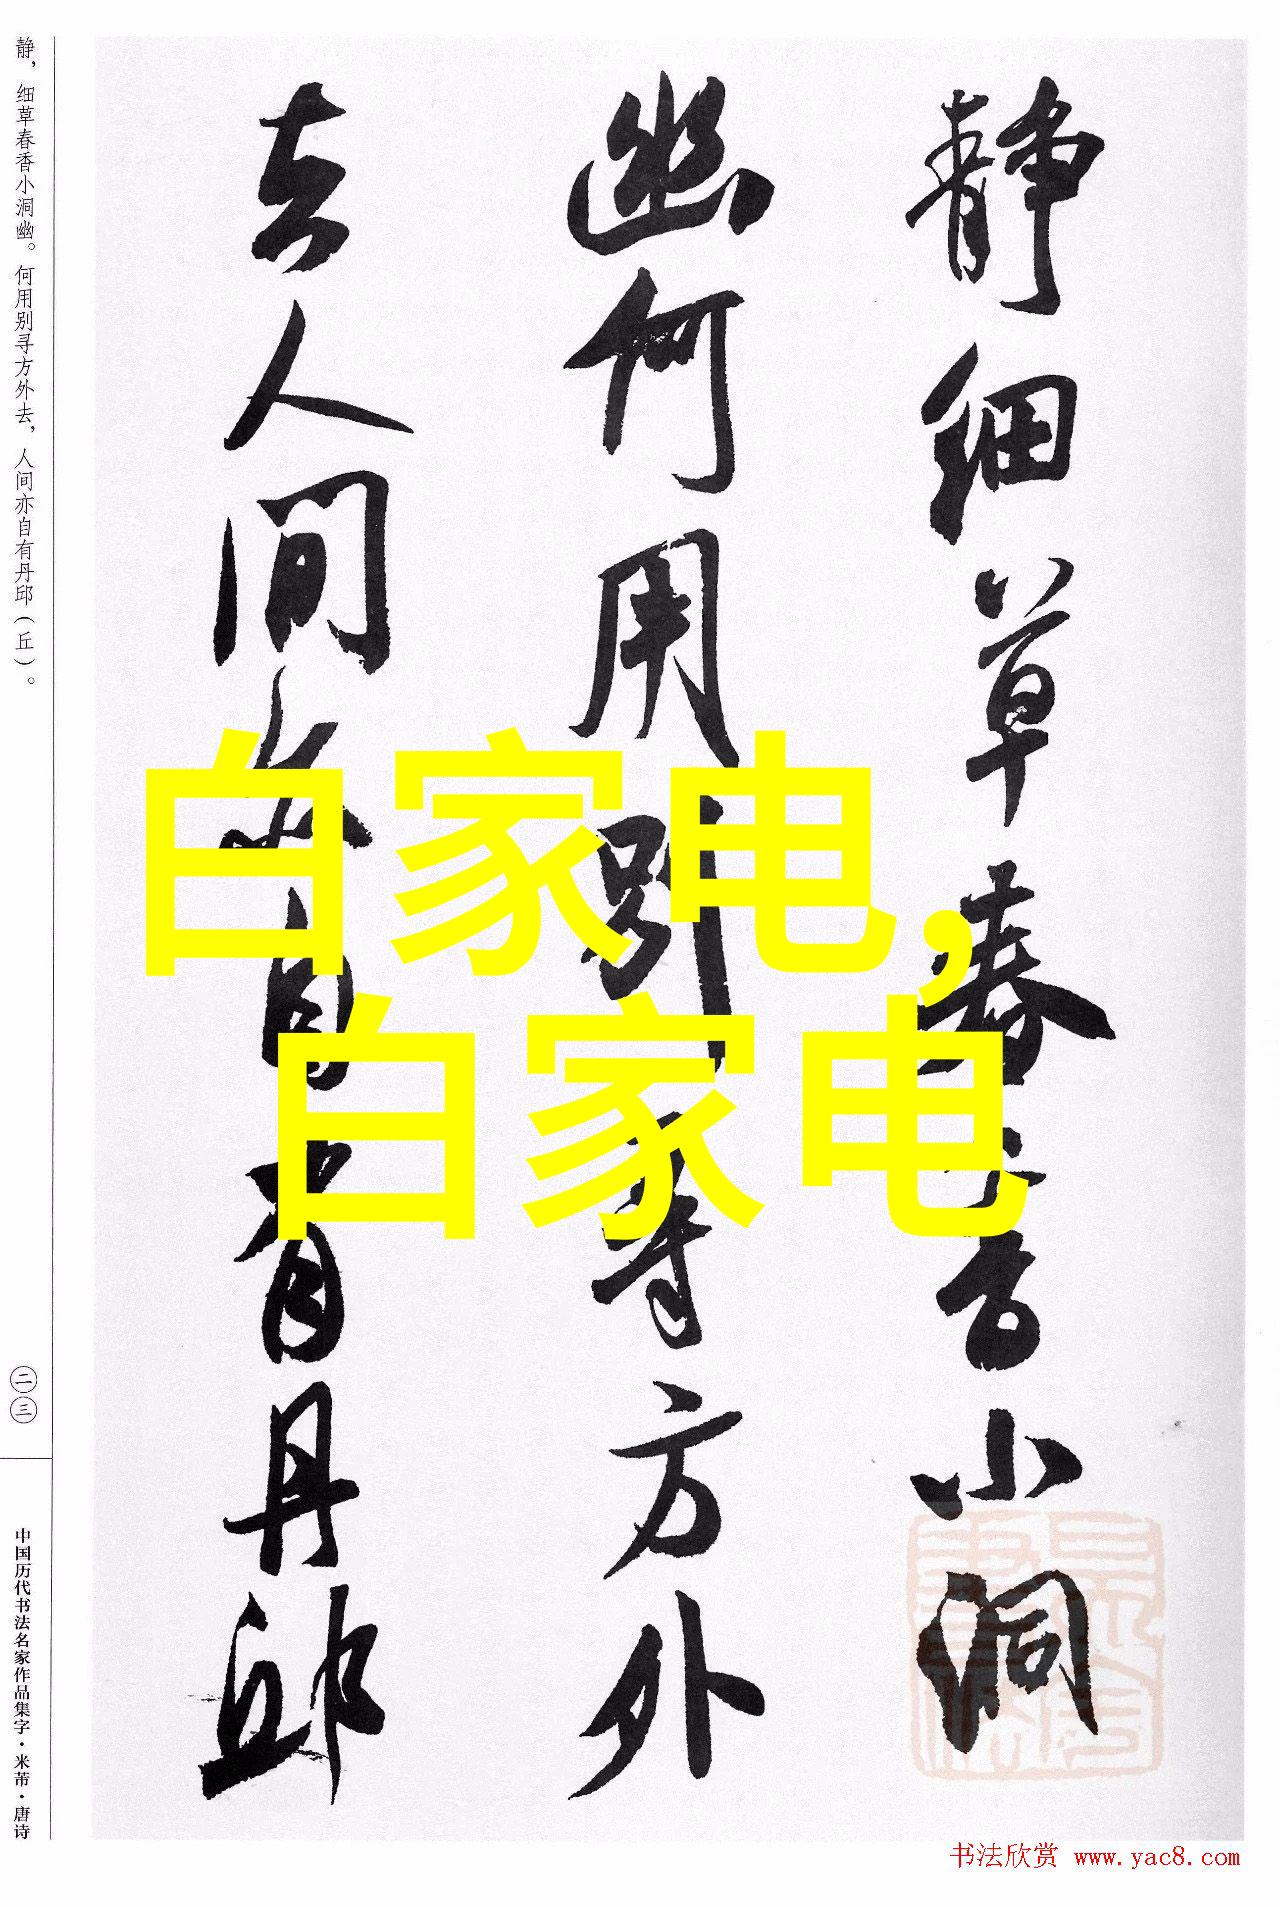 静细草春香小洞
幽何用别寻方外
去人间亦自有丹邱
白家电,
白家电
静，细草春香小洞幽。何用别寻方外去，人间亦自有丹邱（丘）。
二三
中国历代书法名家作品集字·米芾·唐诗
书法欣赏 www.yac8.com